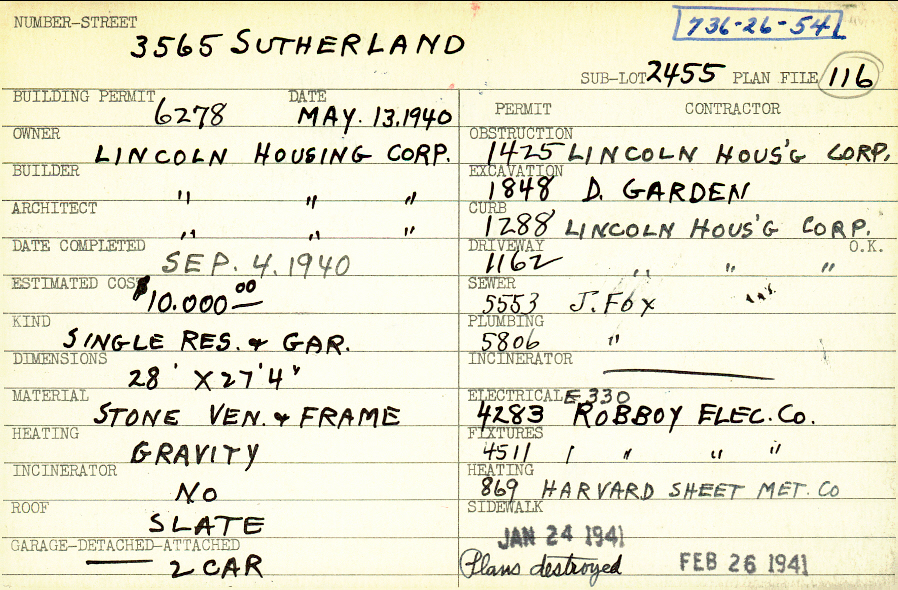 NUMBER-STREET
3565 SUTHERLAND
736-26-54
SUB-LOT 2455 PLAN FILE 116
BUILDING PERMIT 6278 DATE MAY. 13. 1940
OWNER LINCOLN HOUSING CORP.
BUILDER " " "
ARCHITECT " " "
DATE COMPLETED SEP. 4. 1940
ESTIMATED COST $10.000 00
KIND SINGLE RES. & GAR.
DIMENSIONS 28' X 27'4"
MATERIAL STONE VEN. & FRAME
HEATING GRAVITY
INCINERATOR NO
ROOF SLATE
GARAGE-DETACHED-ATTACHED
— 2 CAR
PERMIT CONTRACTOR
OBSTRUCTION 1425 LINCOLN HOUS'G CORP.
EXCAVATION 1848 D. GARDEN
CURB 1288 LINCOLN HOUS'G CORP.
DRIVEWAY O.K.
1162 " " "
SEWER 5553 J. FOX
PLUMBING 5806 "
INCINERATOR —
ELECTRICAL E 330
4283 ROBBOY ELEC. CO.
FIXTURES 4511 " " "
HEATING 869 HARVARD SHEET MET. CO
SIDEWALK
JAN 24 1941
Plans destroyed FEB 26 1941